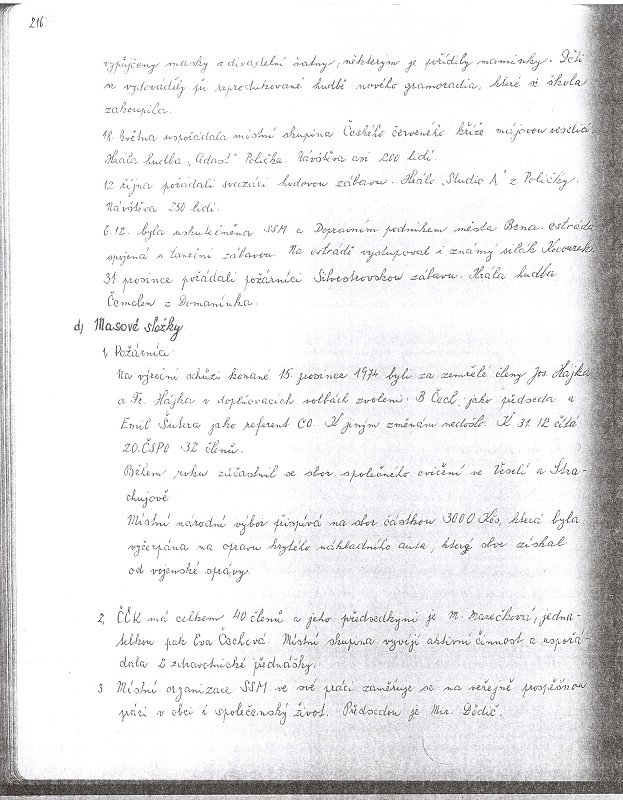 216
vypůjčeny masky z divadelní šatny, některým je pořídily maminky. Děti
se vytováděly při reprodukované hudbě nového gramoradia, které si škola
zakoupila.
18. května uspořádala místní skupina Českého červeného kříže májovou veselici.
Hrála hudba „Adast" Polička. Návštěva asi 200 lidí.
12. října pořádali svazáci hodovou zábavu. Hrálo „Studio A" z Poličky.
Návštěva 250 lidí.
6.12. byla uskutečněna SSM a Dopravním podnikem města Brna estráda
spojená s taneční zábavou. Na estrádě vystupoval i známý silák
31. prosince pořádali požárníci Silvestrovskou zábavu. Hrála hudba
z Domanínka.
d) Masové složky
1, Požárníci
Na výroční schůzi konané 15. prosince 1974 byli za zemřelé členy Jos. Hájka
a Fr. Hájka v doplňovacích volbách zvoleni B. Čech, jako předseda a
Emil Šutera jako referent CO. K jiným změnám nedošlo. K 31. 12. čítá
ZO.ČSPO 32 členů.
Během roku zúčastnil se sbor společného cvičení ve Veselí a Stra-
chujově
Místní národní výbor přispívá na sbor částkou 3000 Kčs, která byla
vyčerpána na opravu krytého nákladního auta, který sbor získal
od vojenské správy.
2, ČČK má celkem 40 členů a jeho předsedkyní je M. Marečková, jedna-
telkou pak Eva Čechová. Místní skupina vyvíjí aktivní činnost a uspořá-
dala 2 zdravotnické přednášky.
3 Místní organizace SSM ve své práci zaměřuje se na veřejně prospěšnou
práci v obci i společenský život. Předsedou je Mir. Dědič.